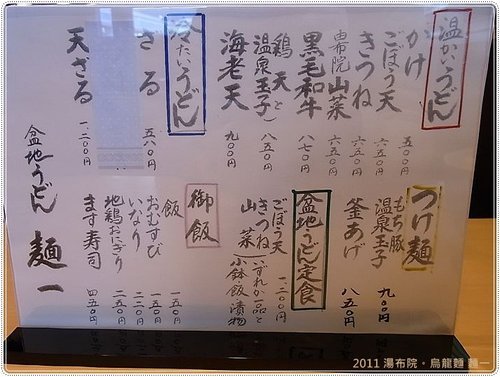 温かいうどん
かけ 五〇〇円
ごぼう天 六五〇円
きつね 六五〇円
由布院山菜 六五〇円
黒毛和牛 八七〇円
鶏天と(温泉玉子) 八五〇円
海老天 九〇〇円
冷たいうどん
ざる 五八〇円
天ざる 一、二〇〇円
つけ麺
もち豚
温泉玉子 九〇〇円
釜あげ 八五〇円
盆地うどん定食
一、二〇〇円
ごぼう天
きつね
山菜
いずれか一品と
小鉢飯漬物
御飯
飯 一五〇円
おむすび 一五〇円
いなり 一五〇円
地鶏おにぎり 二五〇円
ます寿司 四五〇円
盆地うどん 麺一
2011 湯布院。烏龍麵 麵一